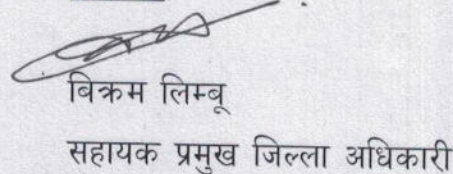 बिक्रम लिम्बू
सहायक प्रमुख जिल्ला अधिकारी